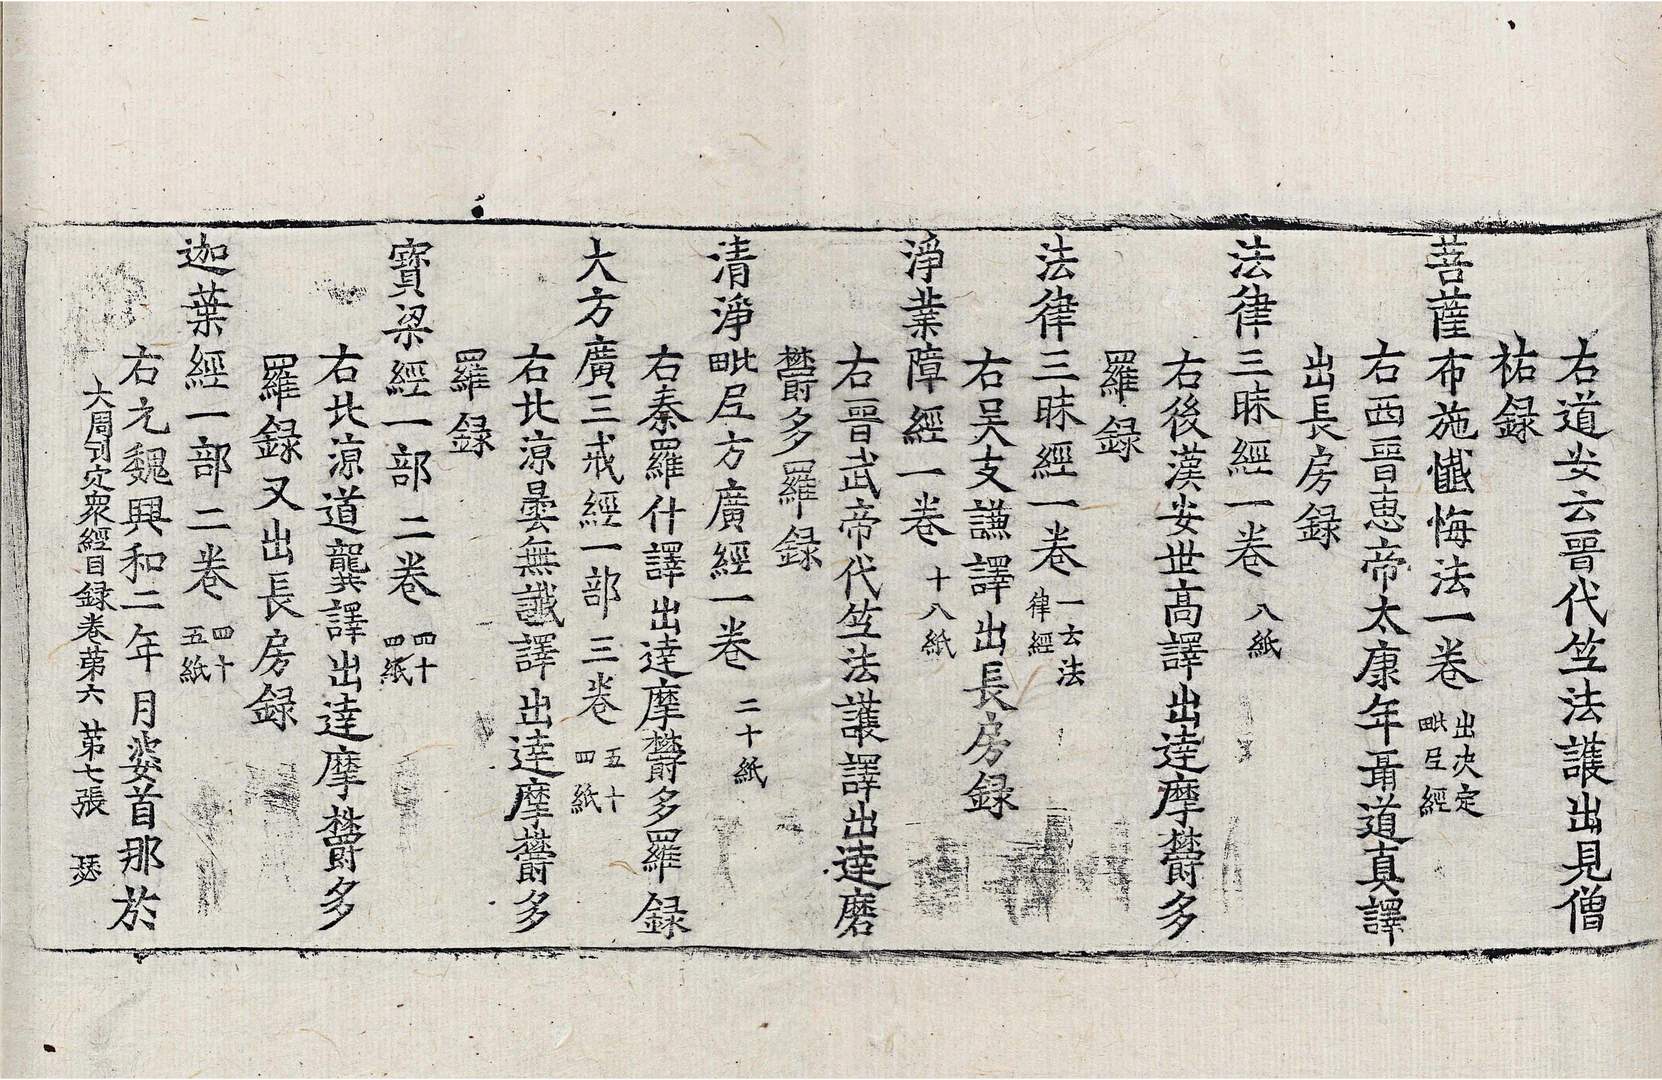 右道安云晉代竺法護出見僧
祐録
菩薩布施懺悔法一卷 出決定毗尼經
右西晉惠帝太康年聶道真譯
出長房録
法律三昧經一卷 八紙
右後漢安世高譯出達摩欝多
羅録
法律三昧經一卷 一云法律經
右吴支謙譯出長房録
淨業障經一卷 十八紙
右晉武帝代竺法護譯出達磨
欝多羅録
清淨毗尼方廣經一卷 二十紙
右秦羅什譯出達摩欝多羅録
大方廣三戒經一部三卷 五十四紙
右北涼曇無讖譯出達摩欝多
羅録
寳梁經一部二卷 四十四紙
右北涼道龔譯出達摩欝多
羅録又出長房録
迦葉經一部二卷 四十五紙
右元魏興和二年月婆首那於
大周刊定衆經目録卷第六 第七張 瑟